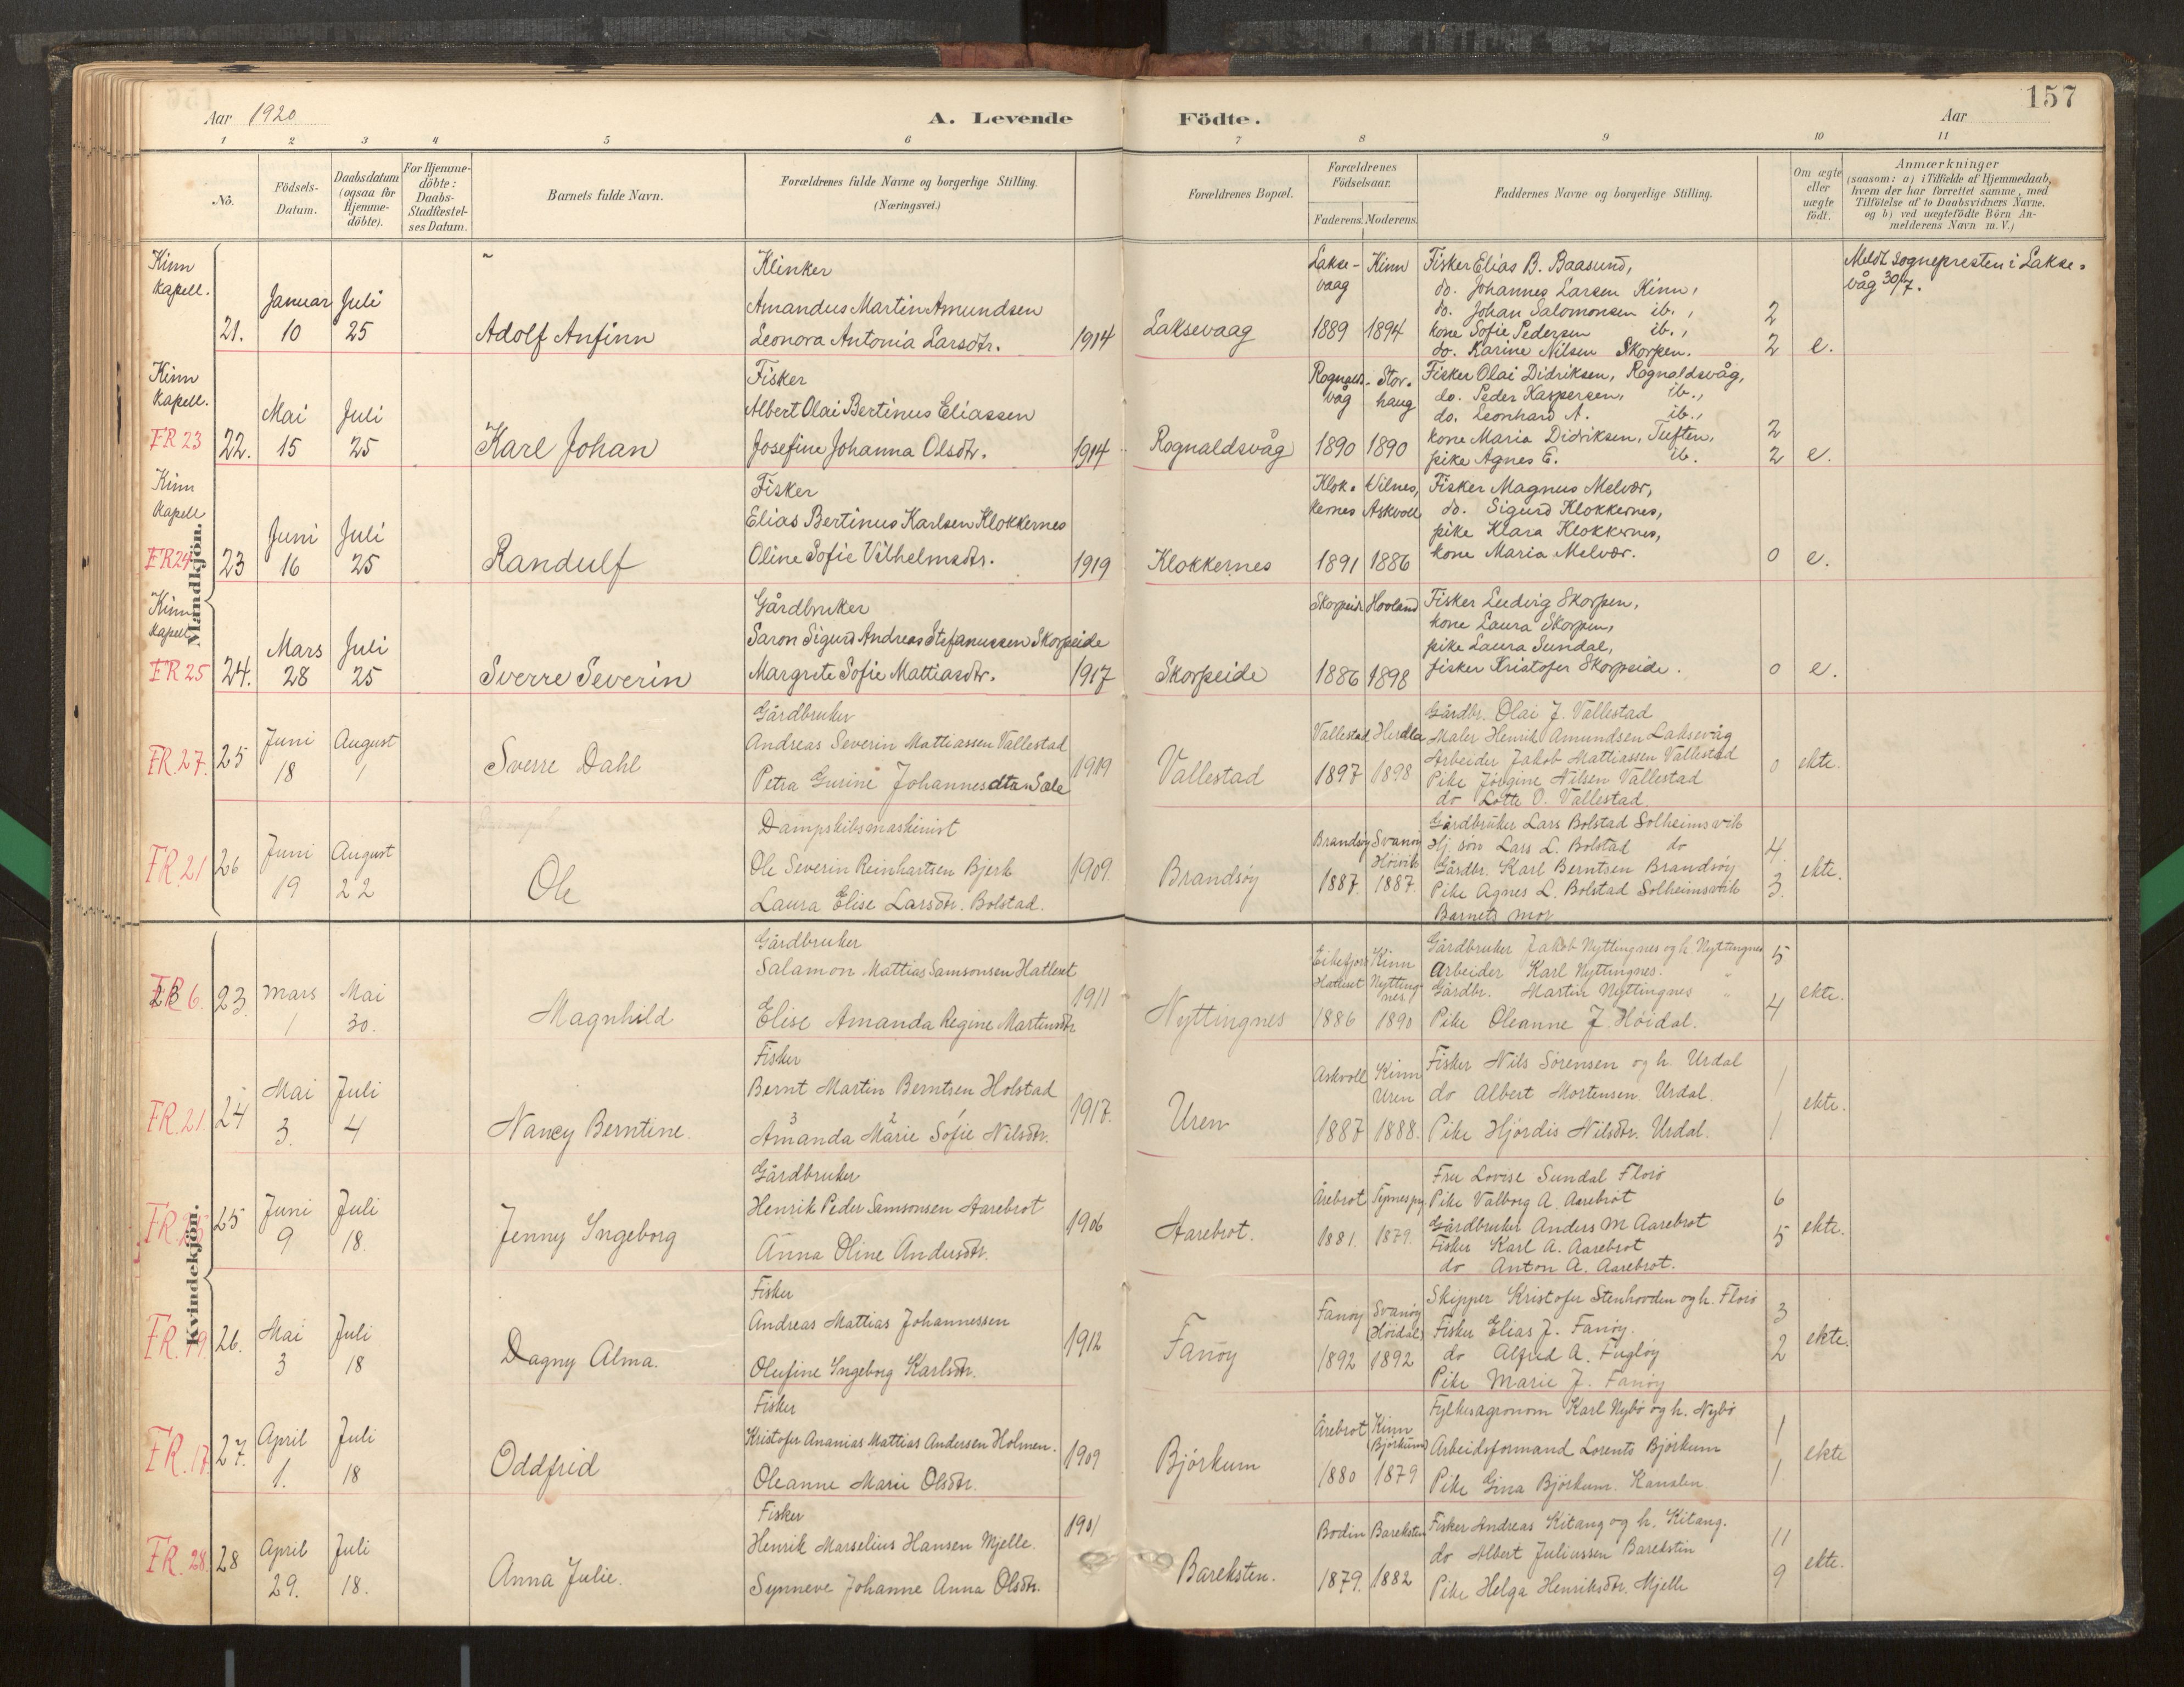 157
Aar 1920
A. Levende Födte.
Aar
1 2 3 4 5 6 7 8 9 10 11
No.
Födsels-
Datum.
Daabsdatum
(ogsaa for
Hjemme-
döbte).
For Hjemme-
döbte:
Daabs-
Stadfæstel-
ses Datum.
Barnets fulde Navn.
Forældrenes fulde Navne og borgerlige Stilling.
(Næringsvei.)
Forældrenes Bopæl.
Forældrenes
Födselsaar.
Faderens. Moderens.
Faddernes Navne og borgerlige Stilling.
Om ægte
eller
uægte
födt.
Anmærkninger
(saasom: a) i Tilfælde af Hjemmedaab,
hvem der har forrettet samme, med
Tilföielse af to Daabsvidners Navne.
og b) ved uægtefödte Börn An-
melderens Navn m. V.)
Mandkjön.
Kinn
Kapell.
21.
Januar
10
Juli
25
Adolf Anfinn
Klinker
Amandus Martin Amundsen
Leonora Antonia Larsdtr.
1914
Laksevaag
Lakse-
vaag
1889
Kinn
1894
Fisker Elias B. Baasund,
do. Johannes Larsen Kinn,
do. Johan Salomonsen ib.,
kone Sofie Pedersen ib.,
do. Karine Nilsen Skorpen.
2
2
e.
Meldt sognepresten i Lakse-
våg 30/7.
Kinn
Kapell.
FR 23
22.
Mai
15
Juli
25
Karl Johan
Fisker
Albert Olai Bertinus Eliassen
Josefine Johanna Olsdtr.
1914
Rognaldsvåg
Rognalds-
våg
1890
Stor-
haug
1890
Fisker Olai Didriksen, Rognaldsvåg,
do. Peder Kaspersen, ib.,
do. Leonhard A. ib.,
kone Maria Didriksen, Tuften,
pike Agnes E. ib.
2
2
e.
Kinn
Kapell
FR 24
23
Juni
16
Juli
25
Randulf
Fisker
Elias Bertinus Karlsen Klokkernes
Oline Sofie Vilhelmsdtr.
1919
Klokkernes
Klok-
kernes
1891
Vilnes,
Askvoll
1886
Fisker Magnus Melvær,
do. Sigurd Klokkernes,
pike Klara Klokkernes,
kone Maria Melvær.
0
e.
Kinn
Kapell
FR 25
24.
Mars
28
Juli
25
Sverre Severin
Gårdbruker
Saron Sigurd Andreas Stefanussen Skorpeide
Margrete Sofie Mattiasdtr.
1917
Skorpeide
Skorpeide
1886
Hovland
1898
Fisker Ludvig Skorpen,
kone Laura Skorpen,
pike Laura Sundal,
fisker Kristofer Skorpeide.
0
e.
FR. 27.
25
Juni
18
August
1
Sverre Dahl
Gårdbruker
Andreas Severin Mattiassen Vallestad
Petra Gurine Johannesdtr
1919
Vallestad
Vallestad
1897
Herdla
1898
Gårdbr. Olai J. Vallestad
Maler Henrik Amundsen Laksevåg
Arbeider Jakob Mattiassen Vallestad
Pike Jørgine Nilsen Vallestad
do Lotte O. Vallestad
0
ekte.
FR. 21
26
Juni
19
August
22
Ole
Dampskibsmaskinist
Ole Severin Reinhartsen Bjerk
Laura Elise Larsdtr. Bolstad.
1909.
Brandsøy
Brandsøy
1887.
Svanøy
Høivik
1887.
Gårdbruker Lars Bolstad Solheimsvik
Hj. søn Lars L. Bolstad do
Gårdbr. Karl Berntsen Brandsøy
Pike Agnes L. Bolstad Solheimsvik
Barnets mor
4.
3.
ekte.
Kvindekjön.
23.
Mars
1
Mai
30.
Magnhild
Gårdbruker
Salamon Mattias Samsonsen Hatleset
Elise Amanda Regine Martinsdtr
1911
Nyttingnes
Eikefjord
Hatleset
1886
Kinn
Nytting-
nes
1890
Gårdbruker Jakob Nyttingnes og h. Nyttingnes
Arbeider Karl Nyttingnes. "
Gårdbr. Martin Nyttingnes "
Pike Oleanne J. Høidal.
5
4
ekte.
FR. 21.
24
Mai
3.
Juli
4
Nancy Berntine.
Fisker
Bernt Martin Berntsen Holstad
Amanda Marie Sofie Nilsdtr.
1917.
Uren
Askvoll
1887
Kinn
Uren
1888.
Fisker Nils Sørensen og h. Urdal
do Albert Mortensen. Urdal.
Pike Hjørdis Nilsdtr. Urdal.
1
1
ekte.
25
Juni
9
Juli
18.
Jenny Ingeborg
Gårdbruker
Henrik Peder Samsonsen Aarebrot
Anna Oline Andersdtr.
1906
Aarebrot.
Årebrot
1881.
1879.
Fru Lovise Sundal Florø
Pike Valborg A. Aarebrot
Gårdbruker Anders M Aarebrot
Fisker Karl A. Aarebrot
do Anton A. Aarebrot.
6
5
ekte.
FR. 19.
26.
Mai
3
Juli
18
Dagny Alma.
Fisker
Andreas Mattias Johannessen
Olufine Ingeborg Karlsdtr.
1912
Fanøy
Fanøy
1892
Svanøy
(Høidal)
1892
Skipper Kristofer Stenhovden og h. Florø
Fisker Elias J. Fanøy.
do Alfred A. Fugløy
Pike Marie J. Fanøy
3
2
ekte.
FR. 17.
27.
April
1.
Juli
18
Oddfrid
Fisker
Kristofer Ananias Mattias Andersen Holmen.
Oleanne Marie Olsdtr.
1909
Bjørkum
Årebrot
1880
Kinn
(Bjørkum)
1879
Fylkesagronom Karl Nybø og h. Nybø
Arbeidsformand Lorents Bjørkum
Pike Gina Bjørkum.
1
1
ekte
FR. 28.
28
April
29.
Juli
18.
Anna Julie.
Fisker
Henrik Marselius Hansen Mjelle.
Synneve Johanne Anna Olsdtr.
1901
Bareksten.
Bodin
1879.
Bareksten
1882
Fisker Andreas Kitang og h. Kitang.
do Albert Juliussen Barekstin
Pike Helga Henriksdtr. Mjelle
11
9
ekte.